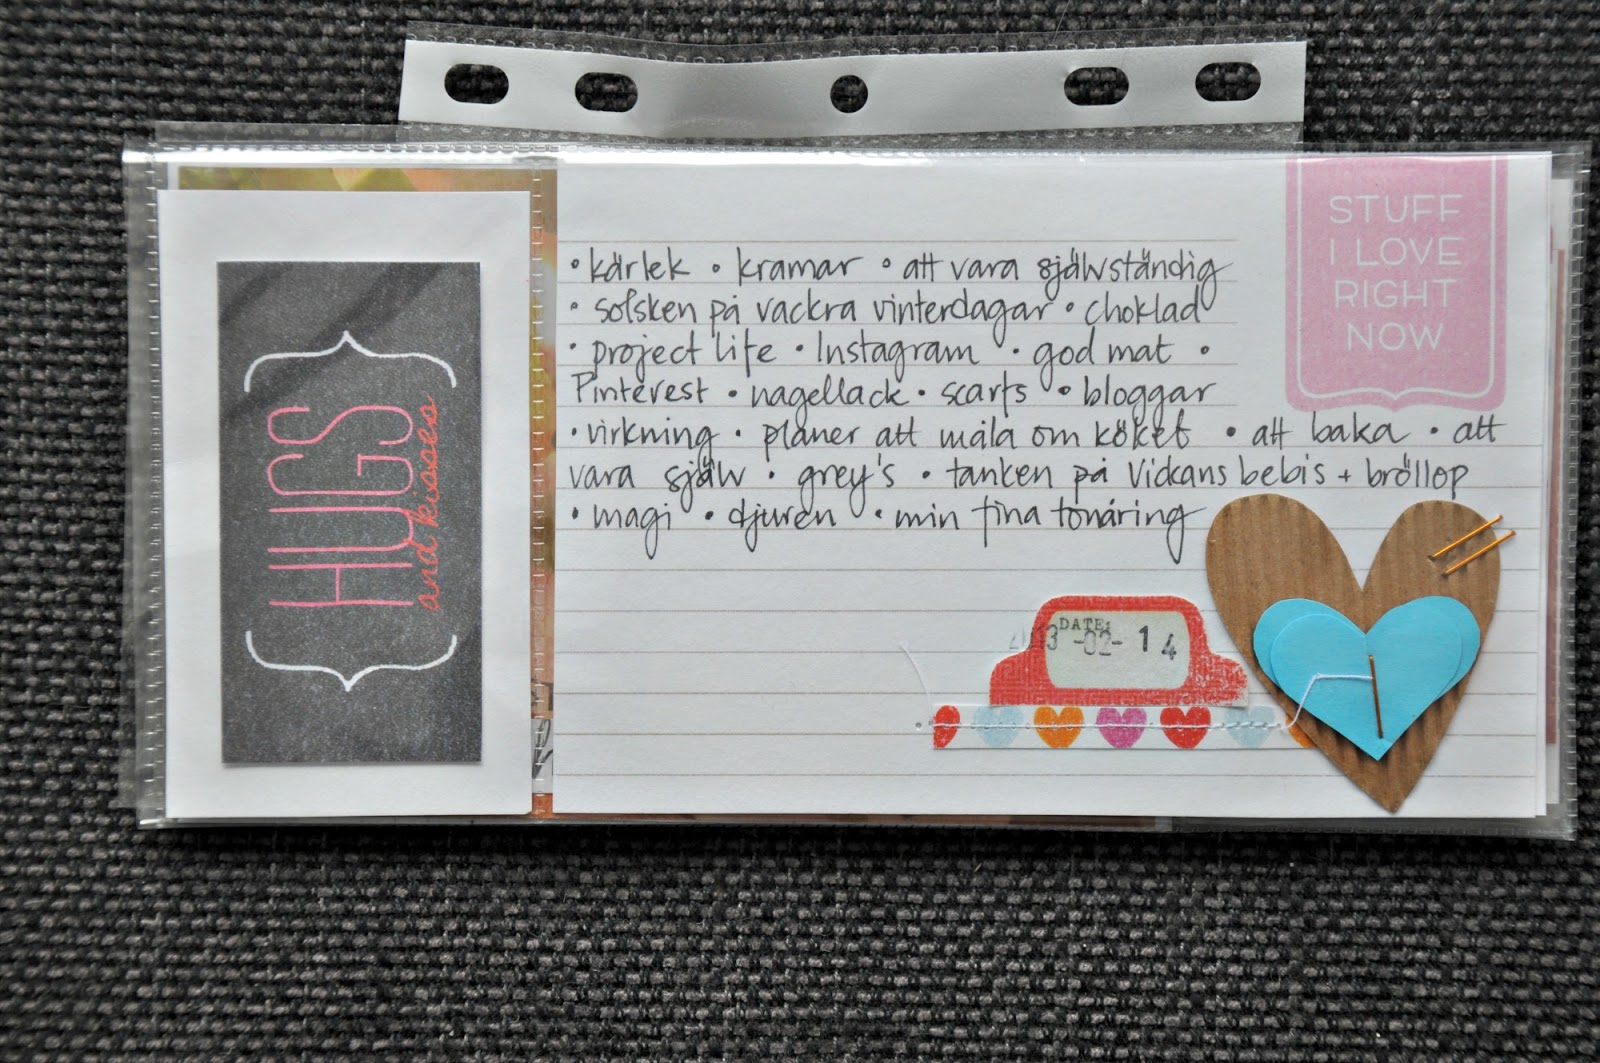 HUGS
and kisses
STUFF
I LOVE
RIGHT
NOW
• kärlek • kramar • att vara självständig
• solsken på vackra vinterdagar • choklad
• project life • Instagram • god mat •
Pinterest • nagellack • scarfs • bloggar
• virkning • planer att måla om köket • att baka • att
vara själv • grey's • tanken på Vickans bebis + bröllop
• magi • djuren • min fina tonåring
DATE:
2013-02-14